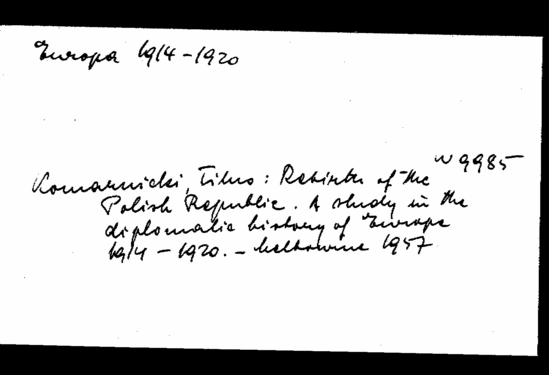 Europa 1914-1920
W 9985
Komarnicki, Titus: Rebirth of the
Polish Republic. A study in the
diplomatic history of Europe
1914-1920. - Melbourne 1957